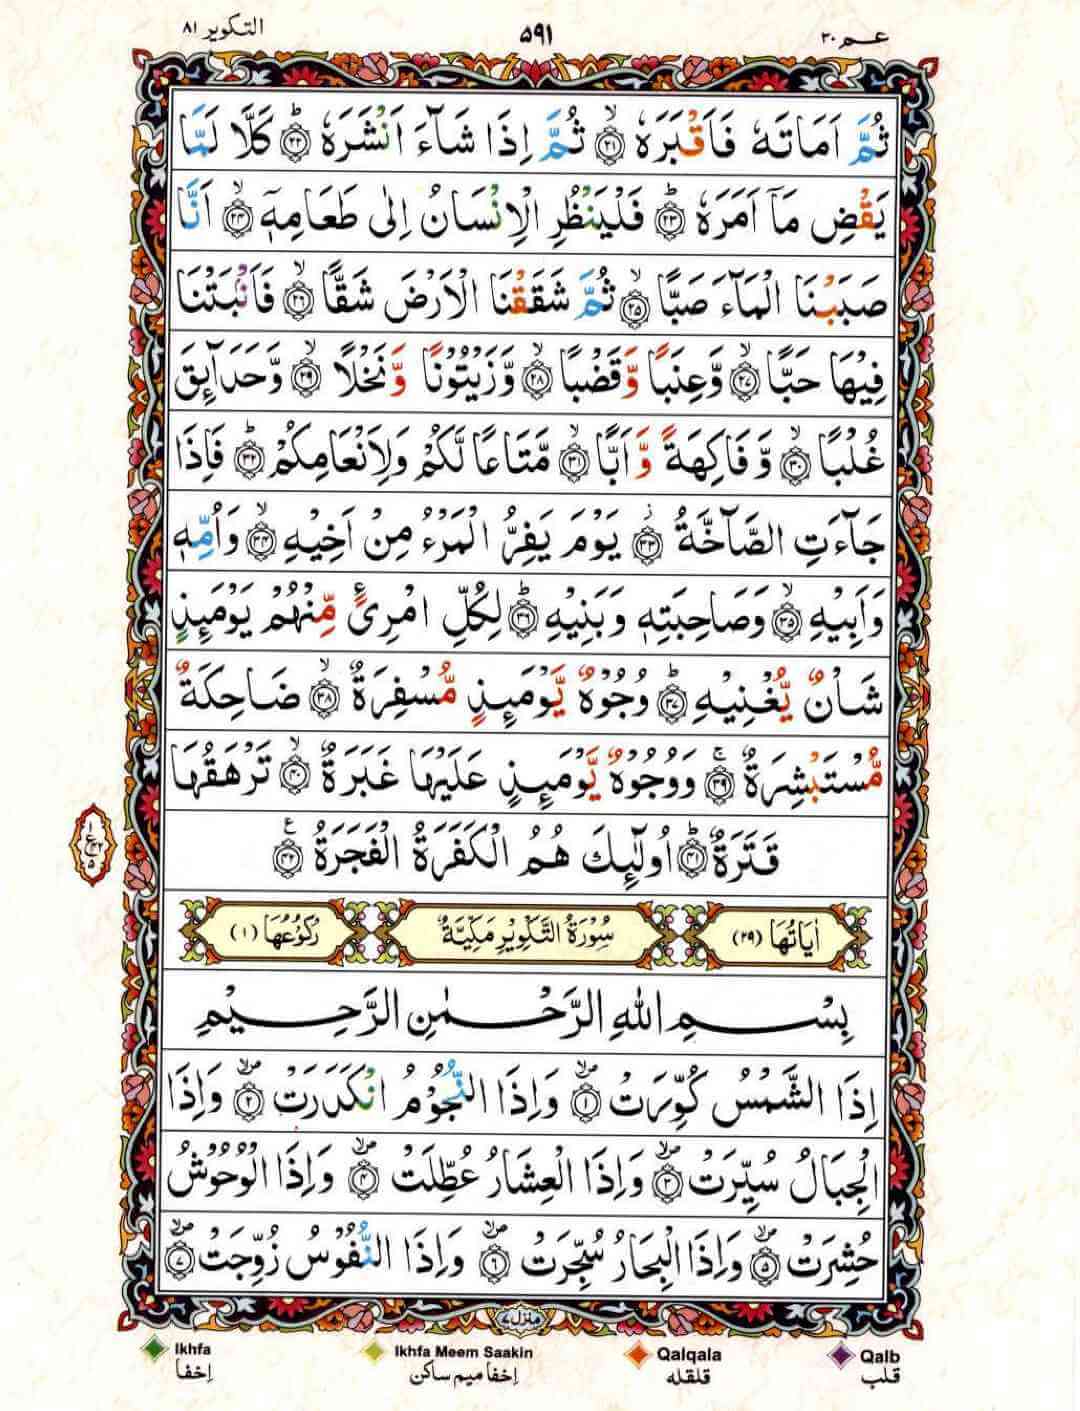 عـم ٣٠ ٥٩١ التكوير ٨١
ثُمَّ اَمَاتَهٗ فَاَقْبَرَهٗ ۙ‏﴿۲۱﴾ ثُمَّ اِذَا شَآءَ اَنْشَرَهٗ ؕ‏﴿۲۲﴾ كَلَّا لَمَّا
يَقْضِ مَاۤ اَمَرَهٗ ؕ‏﴿۲۳﴾ فَلْيَنْظُرِ الْاِنْسَانُ اِلٰى طَعَامِهٖۤ ۙ‏﴿۲۴﴾ اَنَّا
صَبَبْنَا الْمَآءَ صَبًّا ۙ‏﴿۲۵﴾ ثُمَّ شَقَقْنَا الْاَرْضَ شَقًّا ۙ‏﴿۲۶﴾ فَاَنْۢبَتْنَا
فِيْهَا حَبًّا ۙ‏﴿۲۷﴾ وَّعِنَبًا وَّقَضْبًا ۙ‏﴿۲۸﴾ وَّزَيْتُوْنًا وَّنَخْلًا ۙ‏﴿۲۹﴾ وَّحَدَآئِقَ
غُلْبًا ۙ‏﴿۳۰﴾ وَّفَاكِهَةً وَّاَبًّا ۙ‏﴿۳۱﴾ مَّتَاعًا لَّكُمْ وَلِاَنْعَامِكُمْ ؕ‏﴿۳۲﴾ فَاِذَا
جَآءَتِ الصَّآخَّةُ ؗ‏﴿۳۳﴾ يَوْمَ يَفِرُّ الْمَرْءُ مِنْ اَخِيْهِ ۙ‏﴿۳۴﴾ وَاُمِّهٖ
وَاَبِيْهِ ۙ‏﴿۳۵﴾ وَصَاحِبَتِهٖ وَبَنِيْهِ ؕ‏﴿۳۶﴾ لِكُلِّ امْرِئٍ مِّنْهُمْ يَوْمَئِذٍ
شَاْنٌ يُّغْنِيْهِ ؕ‏﴿۳۷﴾ وُجُوْهٌ يَّوْمَئِذٍ مُّسْفِرَةٌ ۙ‏﴿۳۸﴾ ضَاحِكَةٌ
مُّسْتَبْشِرَةٌ ۚ‏﴿۳۹﴾ وَوُجُوْهٌ يَّوْمَئِذٍ عَلَيْهَا غَبَرَةٌ ۙ‏﴿۴۰﴾ تَرْهَقُهَا
قَتَرَةٌ ؕ‏﴿۴۱﴾ اُولٰٓئِكَ هُمُ الْكَفَرَةُ الْفَجَرَةُ ‏﴿۴۲﴾ ع
١ ع ٤٢ ٥
اٰيَاتُهَا (٢٩) سُوْرَةُ التَّكْوِيْرِ مَكِّيَّةٌ رُكُوْعُهَا (١)
بِسْمِ اللهِ الرَّحْمٰنِ الرَّحِيْمِ
اِذَا الشَّمْسُ كُوِّرَتْ ۙ‏﴿۱﴾ وَاِذَا النُّجُوْمُ انْكَدَرَتْ ۙ‏﴿۲﴾ وَاِذَا
الْجِبَالُ سُيِّرَتْ ۙ‏﴿۳﴾ وَاِذَا الْعِشَارُ عُطِّلَتْ ۙ‏﴿۴﴾ وَاِذَا الْوُحُوْشُ
حُشِرَتْ ۙ‏﴿۵﴾ وَاِذَا الْبِحَارُ سُجِّرَتْ ۙ‏﴿۶﴾ وَاِذَا النُّفُوْسُ زُوِّجَتْ ۙ‏﴿۷﴾
منزل ٧
Ikhfa Ikhfa Meem Saakin Qalqala Qalb
إخفا إخفا ميم ساكن قلقله قلب